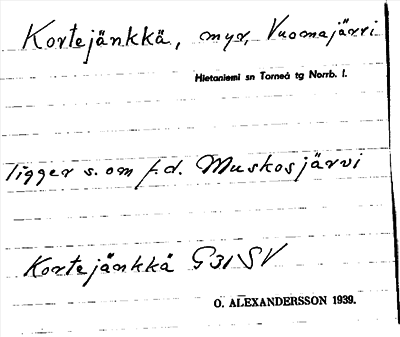 Kortejänkkä, myr, Vuomajärvi
Hietaniemi sn Torneå tg Norrb. l.
ligger s. om f.d. Muskosjärvi
Kortejänkkä G31SV
O. ALEXANDERSSON 1939.